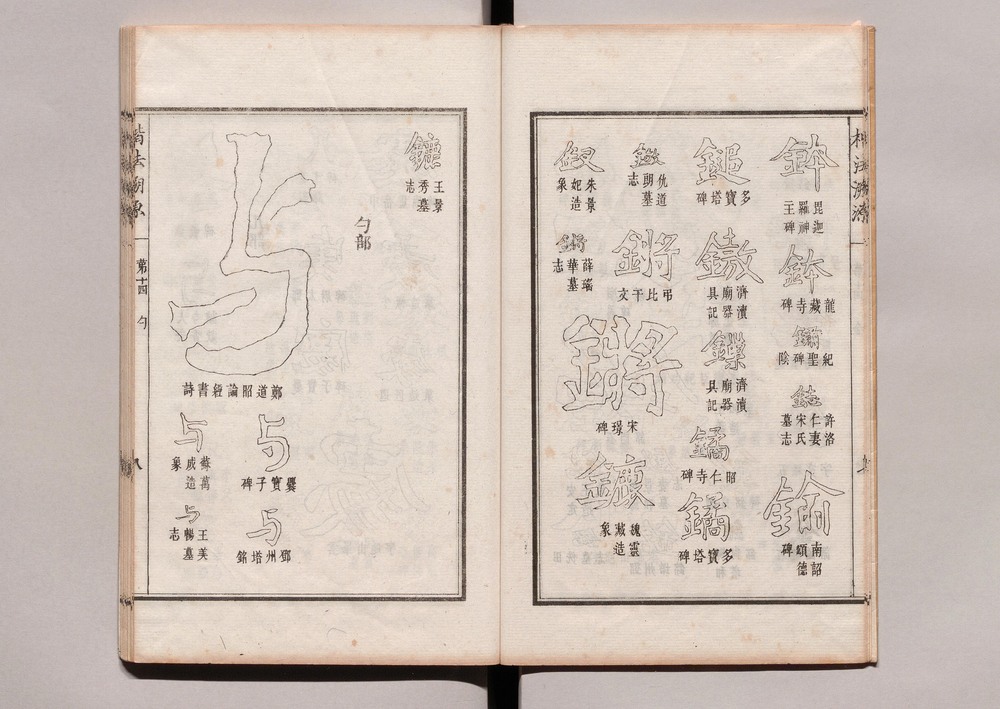 鉢
毘迦羅神王碑
鉢
龍藏寺碑
紀聖碑陰
鋕
許洛仁妻宋氏墓志
鍮
南詔德頌碑
鎚
多寶塔碑
濟瀆廟器具記
濟瀆廟器具記
鐍
昭仁寺碑
鐍
多寶塔碑
仇道朗墓志
朱景妃造象
鏘
弔比干文
鏘
薛瑤華墓志
鏘
宋璟碑
鑣
魏靈藏造象
鑣
王景秀墓志
勺部
与
鄭道昭論經書詩
与
爨寶子碑
与
鄧州塔銘
与
蘇萬成造象
与
王美暢墓志
楷法溯源
第十四
勺
八